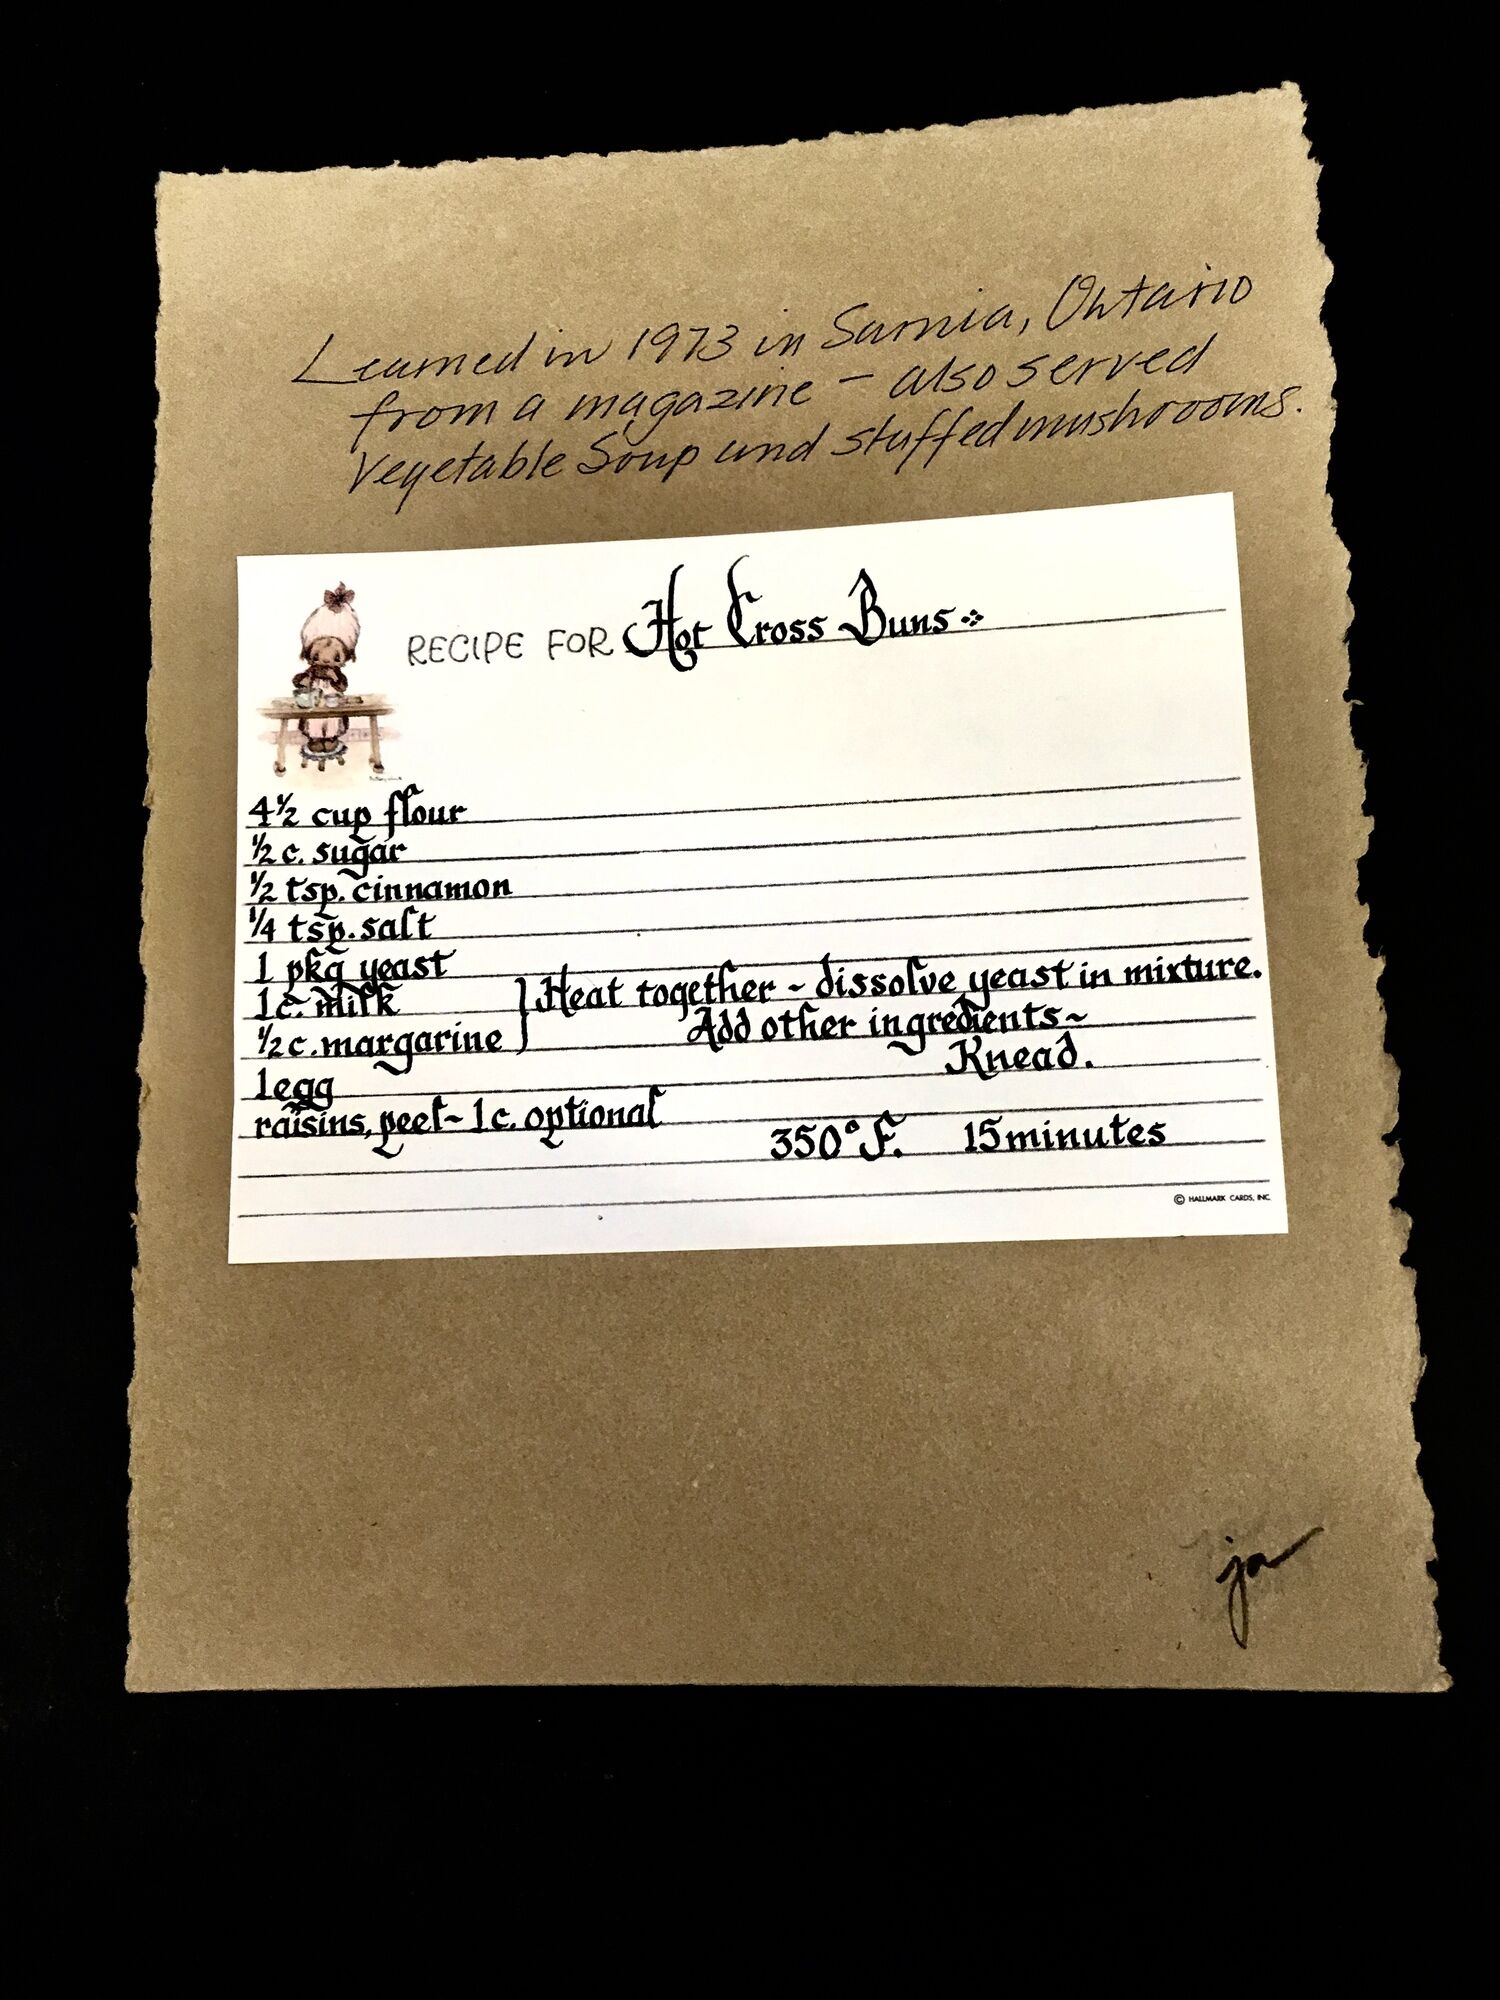 Learned in 1973 in Sarnia, Ontario
from a magazine – also served
Vegetable Soup and stuffed mushrooms.
RECIPE FOR Hot Cross Buns
4½ cup flour
½ c. sugar
½ tsp. cinnamon
¼ tsp. salt
1 pkg yeast
1 c. milk } Heat together ~ dissolve yeast in mixture.
½ c. margarine Add other ingredients ~
Knead.
1 egg
raisins, peel ~ 1 c. optional
350° F. 15 minutes
© HALLMARK CARDS, INC.
ja